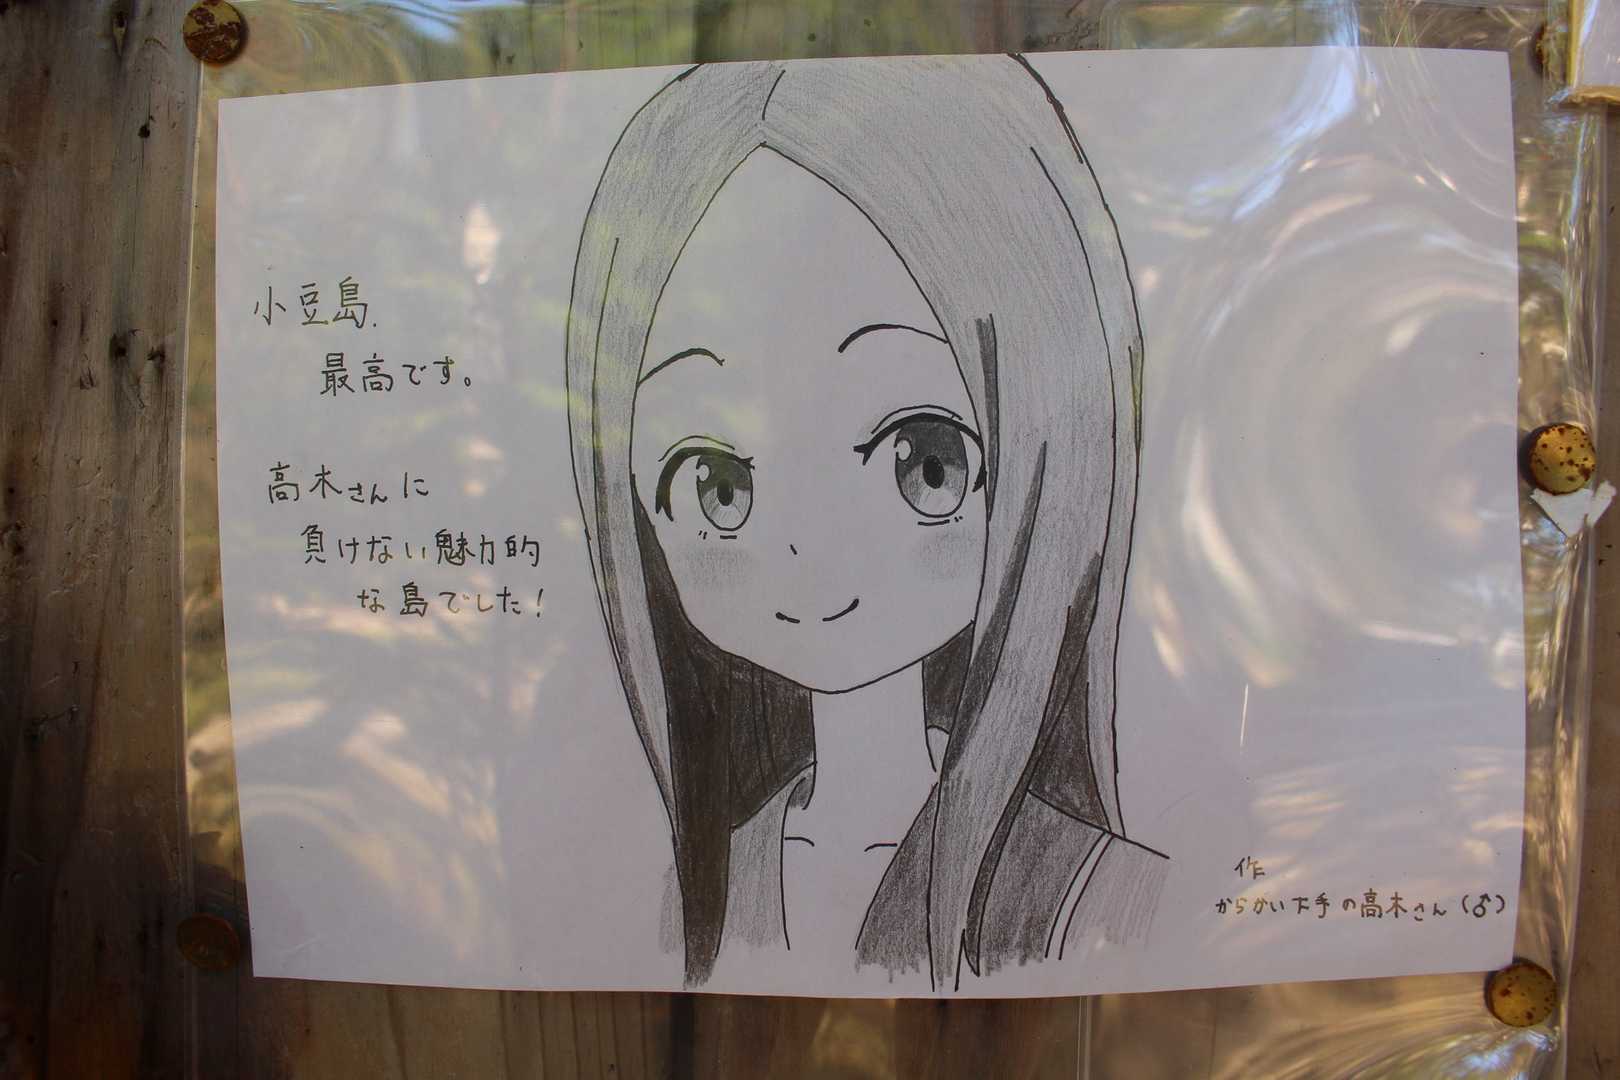 小豆島、
最高です。
高木さんに
負けない魅力的
な島でした!
作
からかい下手の高木さん(♂)